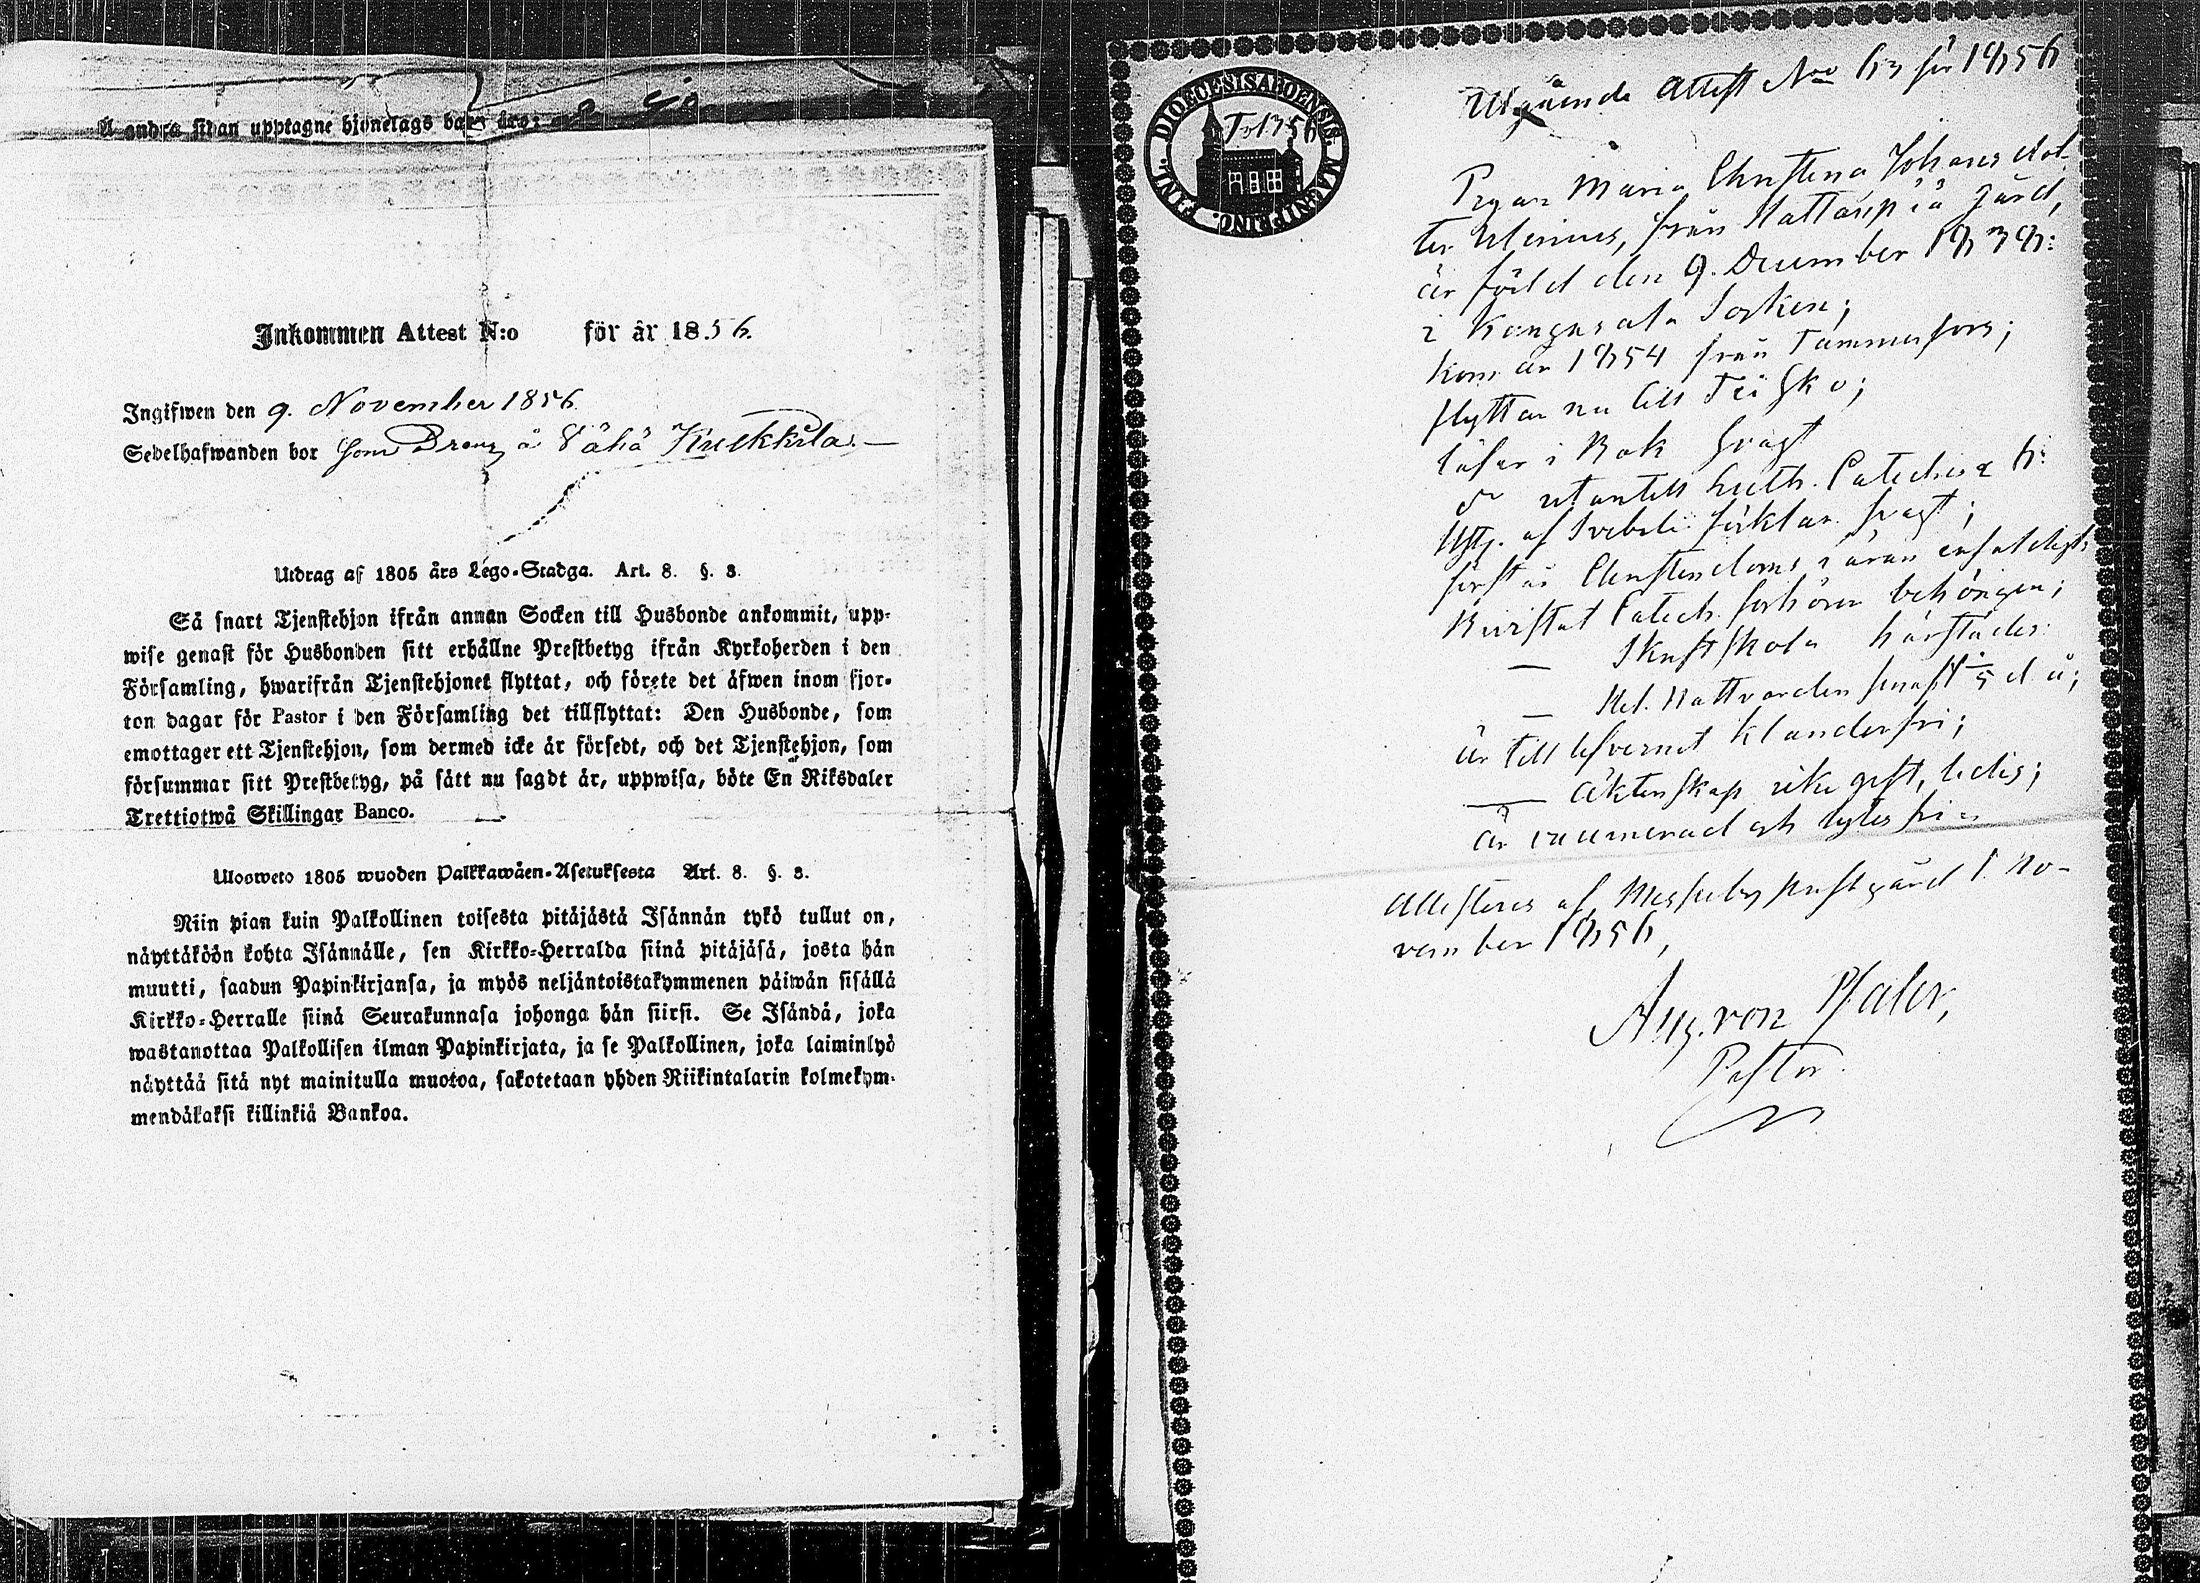 Å andra sidan upptagne hjonelags barn äro:
Inkommen Attest N:o för år 1856.
Ingifwen den 9. November 1856
Sedelhafwanden bor som Dreng å Vähä Kuckkila.
Utdrag af 1805 års Lego-Stadga. Art. 8. §. 8.
Så snart Tjenstehjon ifrån annan Socken till Husbonde ankommit, upp-
wise genast för Husbonden sitt erhållne Prestbetyg ifrån Kyrkoherden i den
Församling, hwarifrån Tjenstehjonet flyttat, och förete det äfwen inom fjor-
ton dagar för Pastor i den Församling det tillflyttat: Den Husbonde, som
emottager ett Tjenstehjon, som dermed icke är försedt, och det Tjenstehjon, som
försummar sitt Prestbetyg, på sätt nu sagdt är, uppwisa, böte En Riksdaler
Trettiotwå Skillingar Banco.
Ulosweto 1805 wuoden Palkkawäen-Asetuksesta Art. 8. §. 8.
Niin pian kuin Palkollinen toisesta pitäjästä Isännän tykö tullut on,
näyttäköön kohta Isännälle, sen Kirkko-Herralda siinä pitäjäsä, josta hän
muutti, saadun Papinkirjansa, ja myös neljäntoistakymmenen päiwän sisällä
Kirkko-Herralle siinä Seurakunnasa johonga hän siirsi. Se Isändä, joka
wastanottaa Palkollisen ilman Papinkirjata, ja se Palkollinen, joka laiminlyö
näyttää sitä nyt mainitulla muotoa, sakotetaan yhden Riikintalarin kolmekym-
mendäkaksi killinkiä Bankoa.
DIOECESIS ABOENSIS. MAGNI PRINC. FINL.
1856
Utgående Attest No 63 för 1856
Pigan Maria Christina Johans dot-
ter, från Mattänpää gård,
är född den 9. December 1838:
i Kangasala Socken;
kom år 1854 från Tammerfors;
flyttar nu till Teisko;
läser i Bok svagt
utantill Luth. Cateches
af Svebeli förklar. svagt;
förstår Christendoms läran enfaldigt;
Bevistat Catech. förhören behörigen;
— Skriftskola härstädes:
— Hel. Nattvarden senast d. å;
är till lefvernet klanderfri;
— äktenskap icke gift, ledig;
är vaccinerad och lytes fri
Attesteras af Messuby prestgård 1. No-
vember 1856,
Aug. von Pfaler,
Pastor.